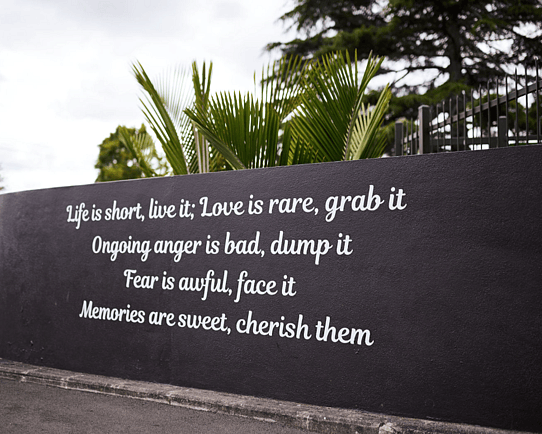 Life is short, live it; Love is rare, grab it
Ongoing anger is bad, dump it
Fear is awful, face it
Memories are sweet, cherish them